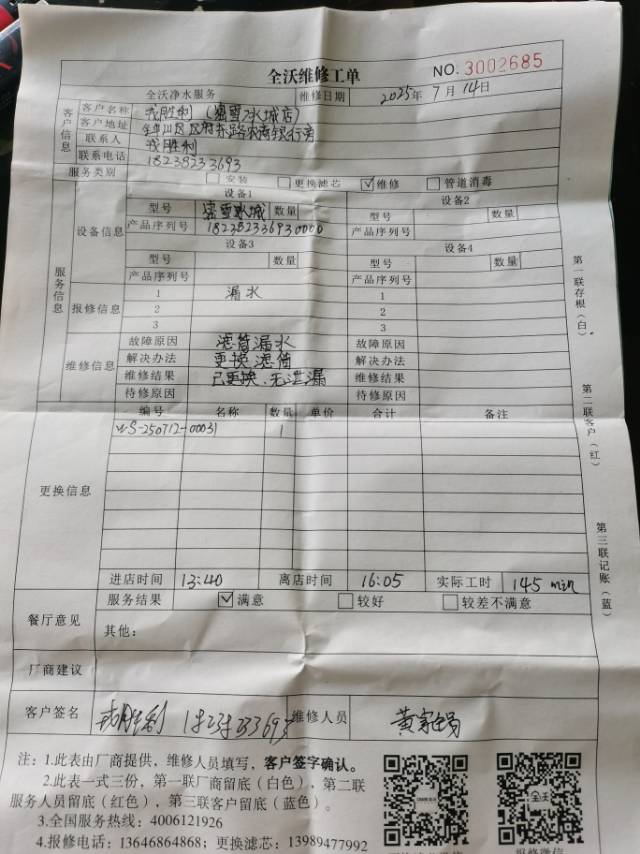 全沃维修工单
NO. 3002685
全沃净水服务 维修日期 2025年 7月 14日
客户信息
客户名称 戎胜利(蜜雪冰城店)
客户地址 区府东路农商银行旁
联系人 戎胜利
联系电话 18238233693
服务类别 安装 更换滤芯 ✓维修 管道消毒
服务信息
设备信息
设备1 设备2
型号 蜜雪冰城 数量 型号 数量
产品序列号 182382336930000 产品序列号
设备3 设备4
型号 数量 型号 数量
产品序列号 产品序列号
报修信息
1 漏水 1
2 2
3 3
维修信息
故障原因 滤筒漏水 故障原因
解决办法 更换滤筒 解决办法
维修结果 已更换.无泄漏 维修结果
待修原因 待修原因
更换信息
编号 名称 数量 单价 合计 备注
WS-250712-00031 1
进店时间 13:40 离店时间 16:05 实际工时 145 min
餐厅意见
服务结果 ✓满意 较好 较差不满意
其他:
厂商建议
客户签名 戎胜利 18238233693 维修人员
注:1.此表由厂商提供,维修人员填写,客户签字确认。
2.此表一式三份,第一联厂商留底(白色),第二联
服务人员留底(红色),第三联客户留底(蓝色)。
3.全国服务热线:4006121926
4.报修电话:13646864868;更换滤芯:13989477992
第一联存根(白)
第二联客户(红)
第三联记账(蓝)
全沃
报修微信